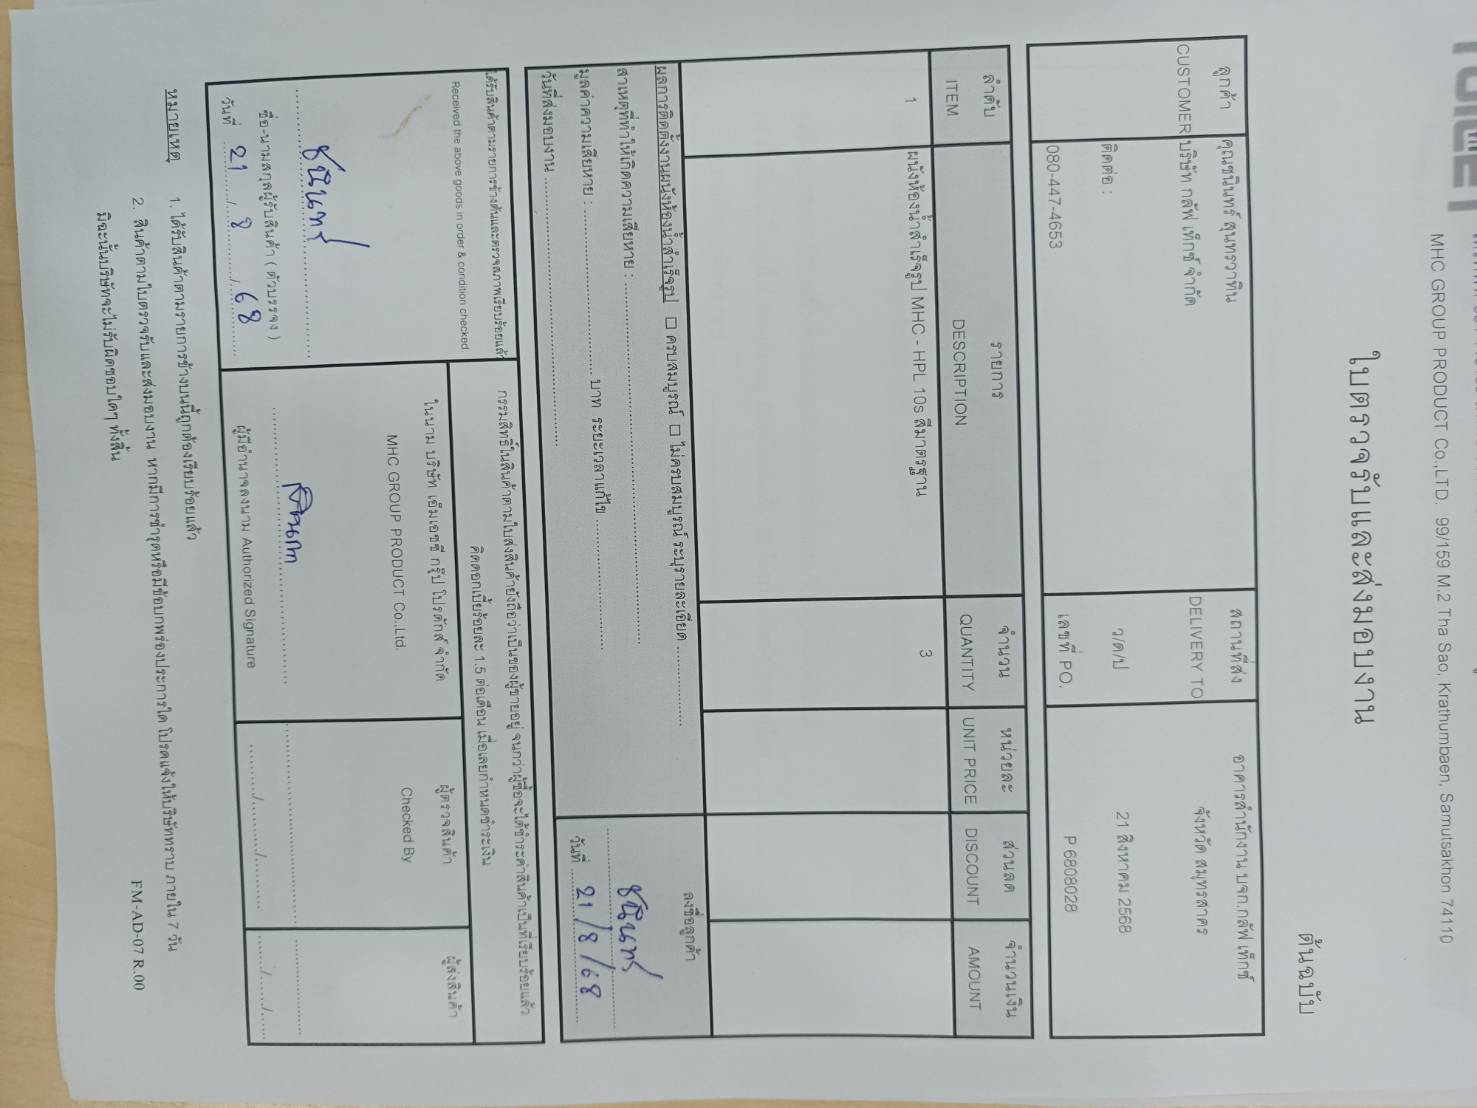 MHC GROUP PRODUCT Co.,LTD. 99/159 M.2 Tha Sao, Krathumbaen, Samutsakhon 74110
ต้นฉบับ
ใบตรวจรับและส่งมอบงาน
ลูกค้า คุณชนินทร์ สุนทรวาทิน สถานที่ส่ง อาคารสำนักงาน บจก.กลัฟ เท็กซ์
CUSTOMER บริษัท กลัฟ เท็กซ์ จำกัด DELIVERY TO จังหวัด สมุทรสาคร
ติดต่อ : ว/ด/ป 21 สิงหาคม 2568
080-447-4653 เลขที่ PO. P 6808028
ลำดับ รายการ จำนวน หน่วยละ ส่วนลด จำนวนเงิน
ITEM DESCRIPTION QUANTITY UNIT PRICE DISCOUNT AMOUNT
1 ผนังห้องน้ำสำเร็จรูป MHC - HPL 10s สีมาตรฐาน 3
ผลการติดตั้งงานผนังห้องน้ำสำเร็จรูป ☐ ครบสมบูรณ์ ☐ ไม่ครบสมบูรณ์ ระบุรายละเอียด ............... ลงชื่อลูกค้า
สาเหตุที่ทำให้เกิดความเสียหาย : ............................................................
ชนินทร์
มูลค่าความเสียหาย : .............................. บาท ระยะเวลาแก้ไข ........................
วันที่ส่งมอบงาน .................................................. วันที่ 21/8/68
ได้รับสินค้าตามรายการข้างต้นและตรวจสภาพเรียบร้อยแล้ว
Received the above goods in order & condition checked.
ชนินทร์
ชื่อ-นามสกุลผู้รับสินค้า ( ตัวบรรจง )
วันที่ 21/8/68
กรรมสิทธิ์ในสินค้าตามใบส่งสินค้ายังถือว่าเป็นของผู้ขายอยู่ จนกว่าผู้ซื้อจะได้ชำระค่าสินค้าเป็นที่เรียบร้อยแล้ว
คิดดอกเบี้ยร้อยละ 1.5 ต่อเดือน เมื่อเลยกำหนดชำระเงิน
ในนาม บริษัท เอ็มเอชซี กรุ๊ป โปรดักส์ จำกัด
MHC GROUP PRODUCT Co.,Ltd.
ผู้มีอำนาจลงนาม Authorized Signature
ผู้ตรวจสินค้า
Checked By
......../........../..........
ผู้ส่งสินค้า
....../......../......
หมายเหตุ 1. ได้รับสินค้าตามรายการข้างบนนี้ถูกต้องเรียบร้อยแล้ว
2. สินค้าตามใบตรวจรับและส่งมอบงาน หากมีการชำรุดหรือมีข้อบกพร่องประการใด โปรดแจ้งให้บริษัททราบ ภายใน 7 วัน
มิฉะนั้นบริษัทจะไม่รับผิดชอบใดๆ ทั้งสิ้น
FM-AD-07 R.00